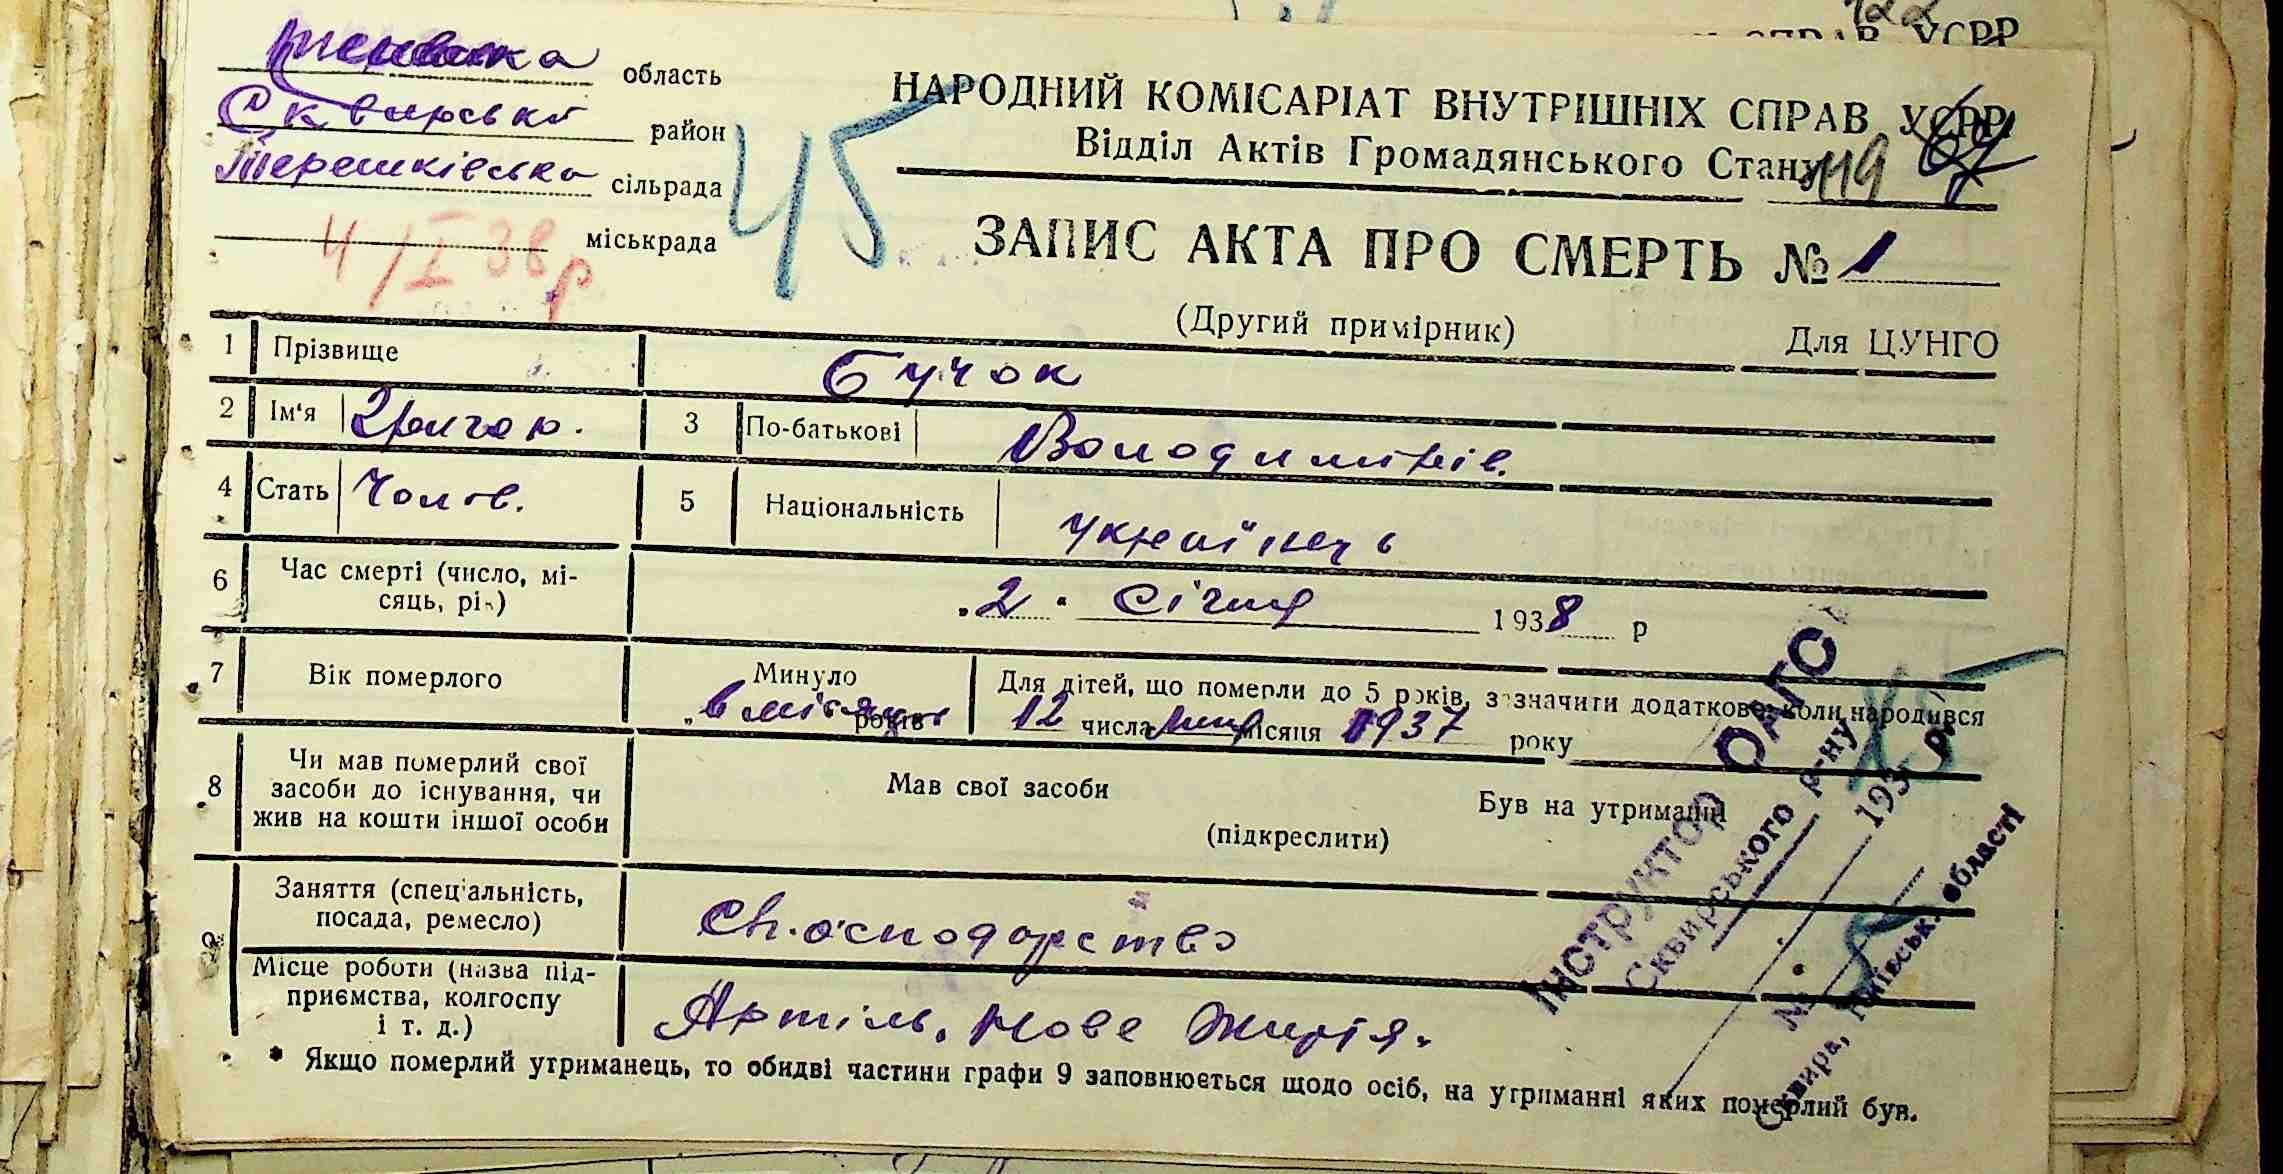 122
СПРАВ УСРР
область
Сквирський район
Терешківська сільрада
міськрада
4/I 38 р
45
НАРОДНИЙ КОМІСАРІАТ ВНУТРІШНІХ СПРАВ УСРР
Відділ Актів Громадянського Стану
119
ЗАПИС АКТА ПРО СМЕРТЬ № 1
(Другий примірник)
Для ЦУНГО
1 Прізвище Бучок
2 Ім'я Григор. 3 По-батькові Володимирів.
4 Стать Чолов. 5 Національність українець
6 Час смерті (число, мі-
сяць, рік) „2" січня 1938 р
7 Вік померлого Минуло 6 місяців років
Для дітей, що померли до 5 років, зазначити додатково, коли народився
12 числа місяця 1937 року
8 Чи мав померлий свої
засоби до існування, чи
жив на кошти іншої особи
Мав свої засоби Був на утриманні
(підкреслити)
9 Заняття (спеціальність,
посада, ремесло) господарство
Місце роботи (назва під-
приємства, колгоспу
і т. д.) Артіль. Нове життя.
* Якщо померлий утриманець, то обидві частини графи 9 заповнюється щодо осіб, на утриманні яких померлий був.
ІНСТРУКТОР ОАГС
Сквирського р-ну
193 р.
№
Сквира, Київськ. області